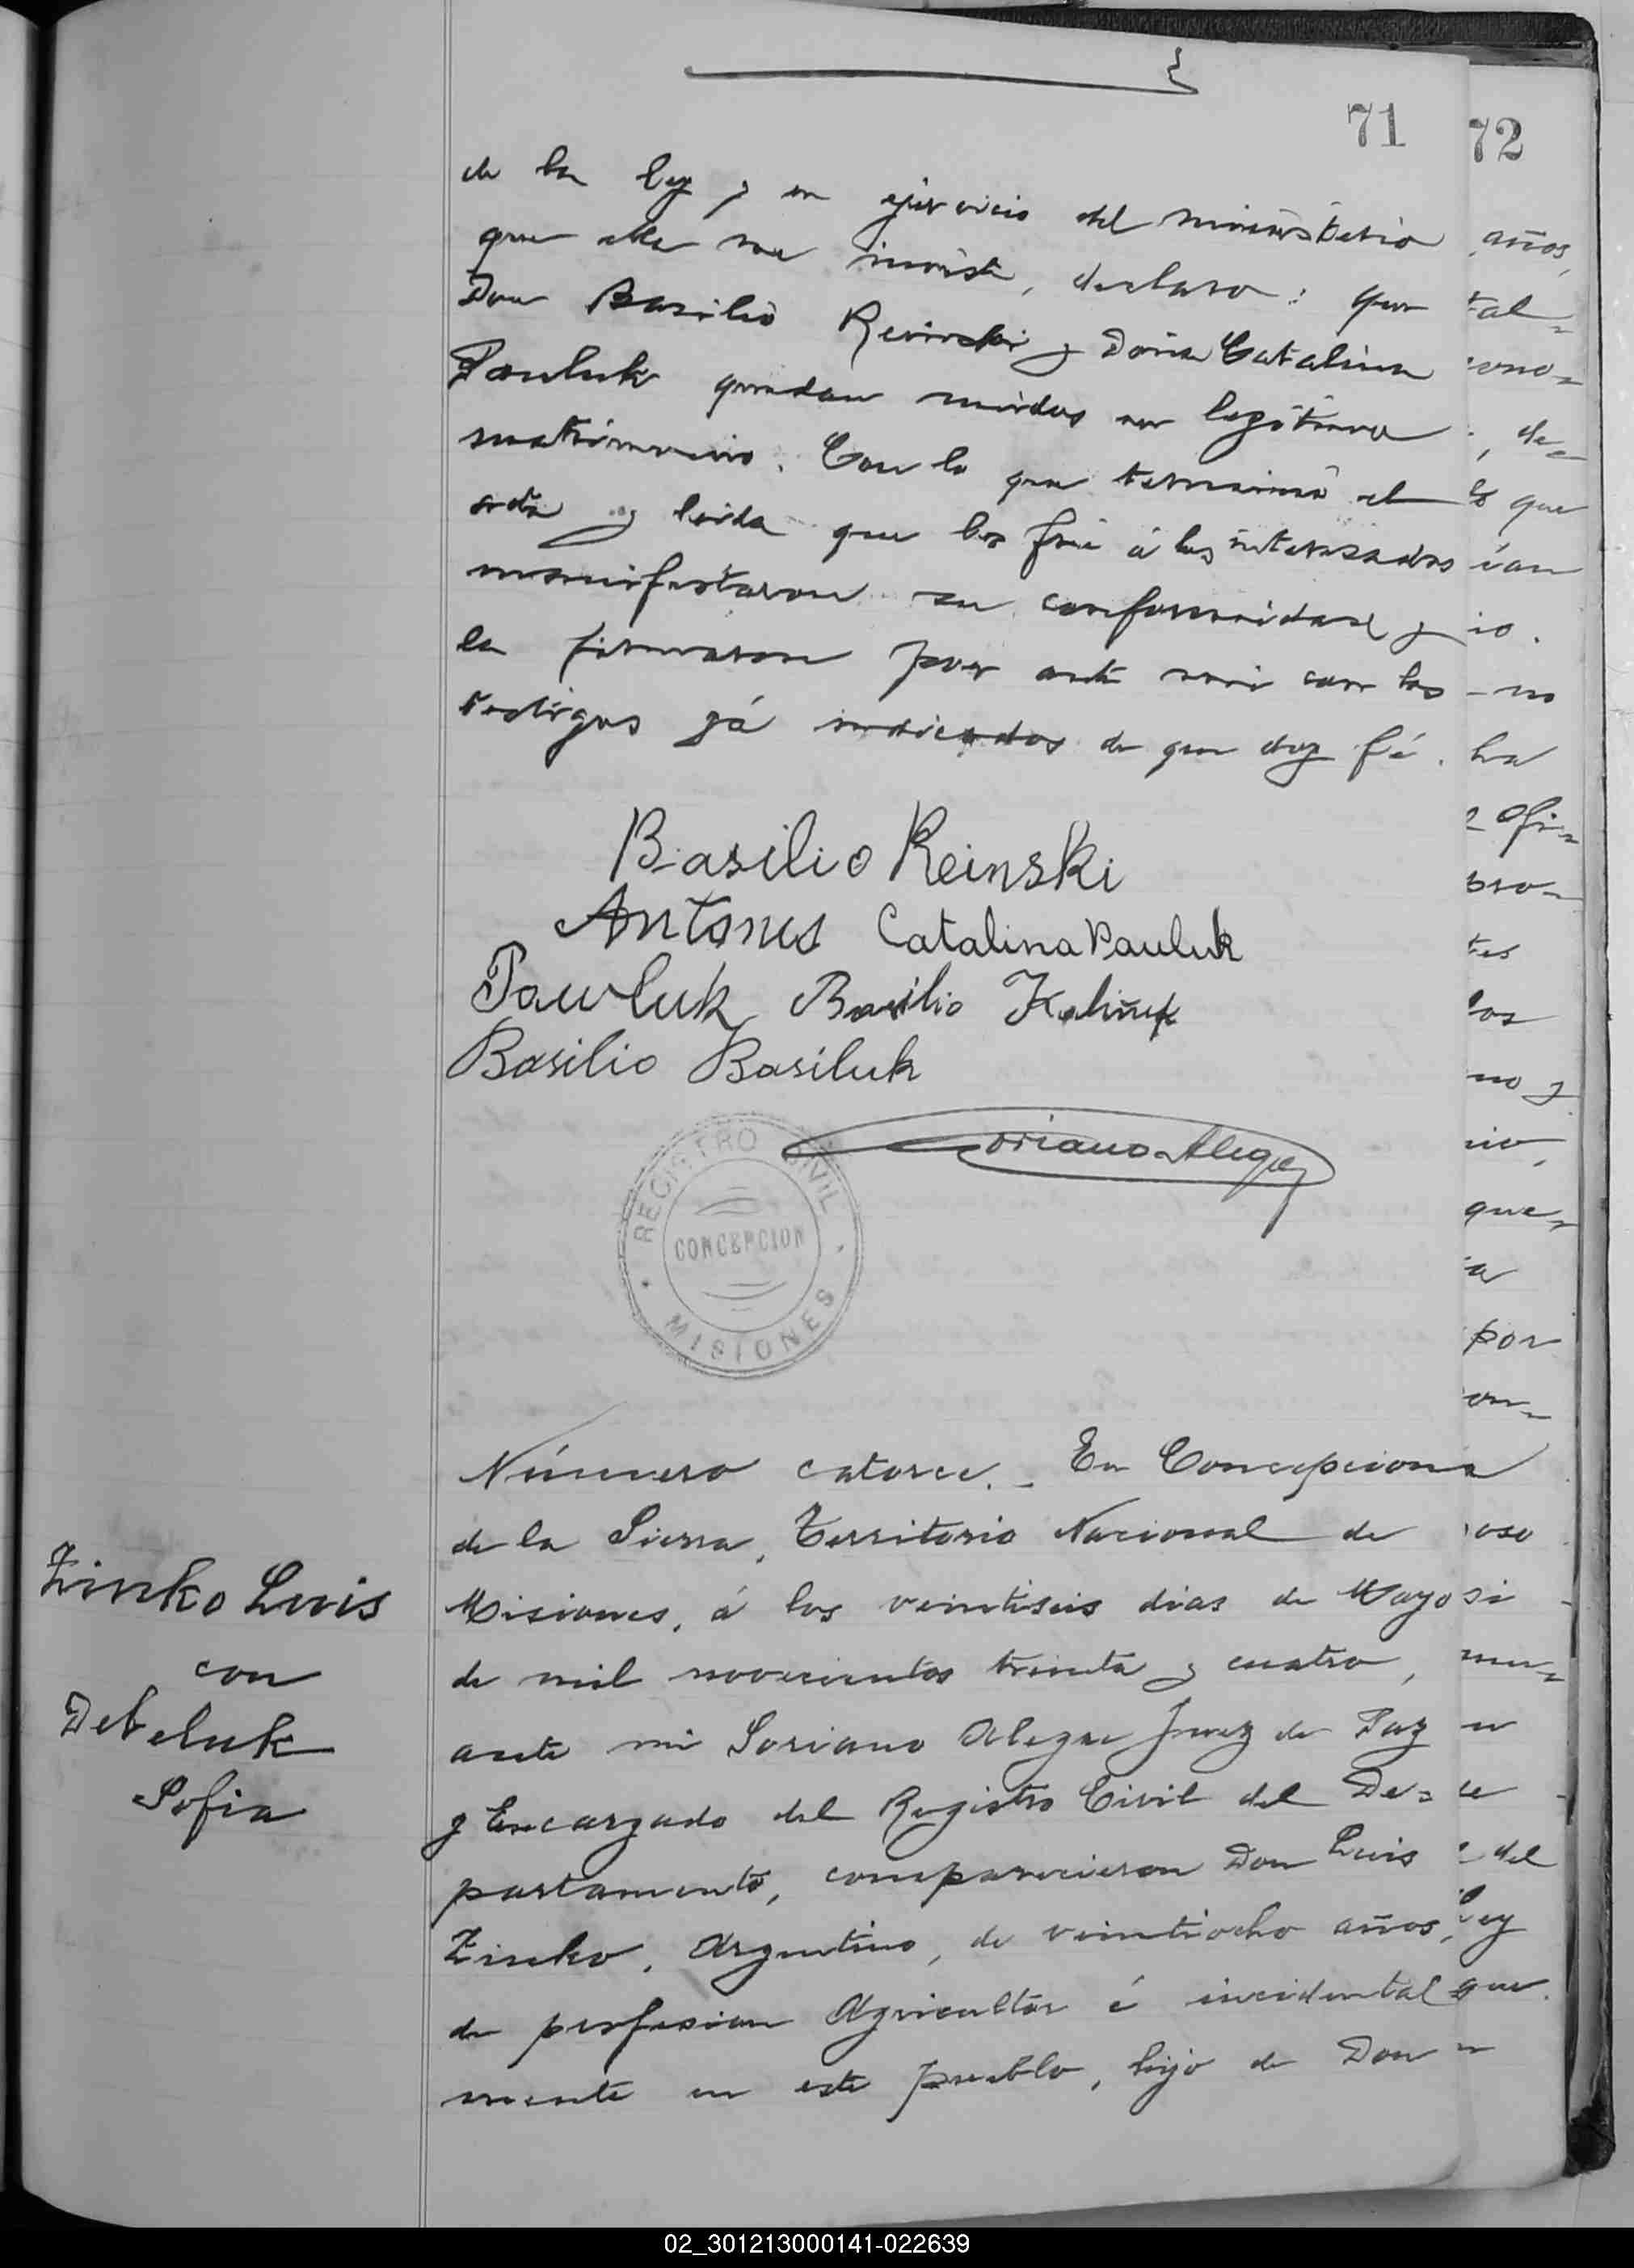 71
72
de la ley y en ejercicio del ministerio
que ella me inviste, declaro: que
Don Basilio Reinski y Doña Catalina
Pauluk quedan unidos en legítimo
matrimonio. Con lo que terminó el
acta y leida que les fué á los interesados
manifestaron su conformidad y
la firmaron por ante mi con los
testigos yá indicados de que doy fé.
Basilio Reinski
Antonio Catalina Pauluk
Pawluk Basilio
Basilio Basiluk
Soriano Alegre
REGISTRO CIVIL
CONCEPCION
MISIONES
Número catorce.- En Concepcion
de la Sierra, Territorio Nacional de
Misiones, á los veintiseis dias de Mayo
de mil novecientos treinta y cuatro,
ante mi Soriano Alegre Juez de Paz
y Encargado del Registro Civil del De=
partamento, comparecieron Don Luis
Zinko, Argentino, de veintiocho años,
de profesion Agricultor é incidental
mente en este pueblo, hijo de Don
Zinko Luis
con
Debeluk
Sofia
años,
tal=
cono=
, de=
lo que
ian
io.
no
ha
Ofi=
pro=
tes
los
no y
rio,
que=
a
por
on=
a
oso
si
mu=
u
ce
del
ley
que
02_301213000141-022639